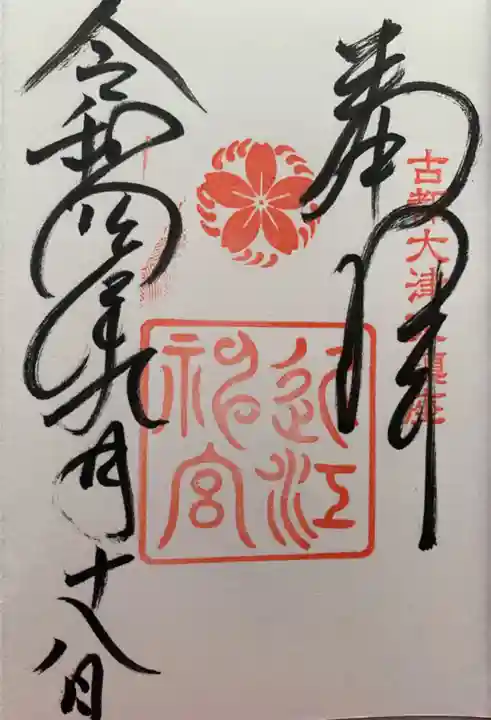 奉拝
古都大津京鎮座
近江
神宮
令和四年九月十八日